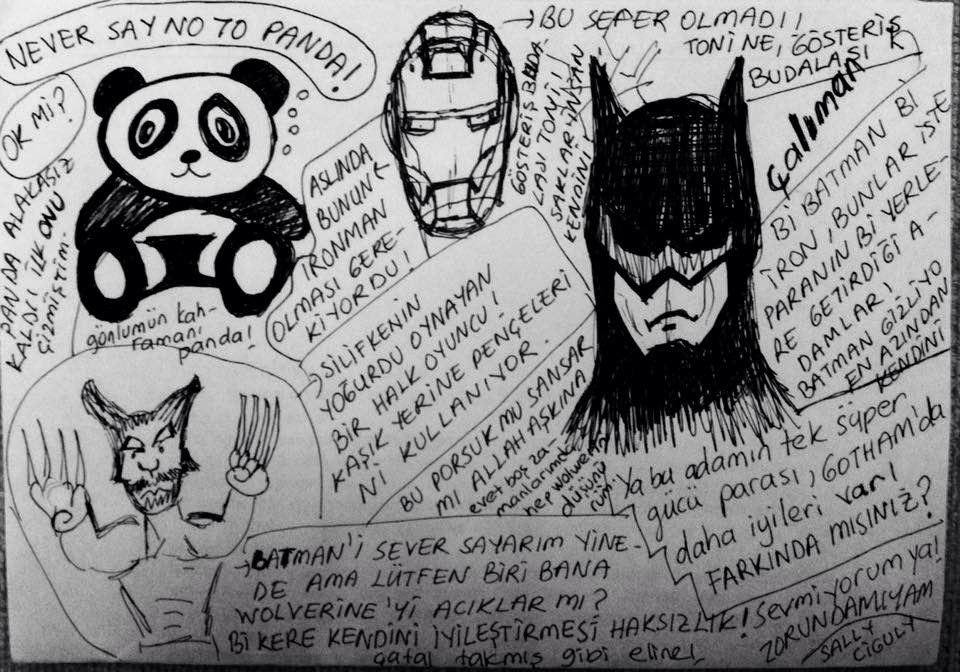 NEVER SAY NO TO PANDA!
OK Mİ?
PANDA ALAKASIZ
KALDI İLK ONU
ÇİZMİŞTİM
gönlümün kah-
ramanı
panda!
ASLINDA
BUNUN
İRONMAN
OLMASI GERE-
KİYORDU!
→BU SEFER OLMADI!
TONİNE, GÖSTERİŞ
BUDALASI
GÖSTERİŞ BUDA-
LASI TONY!
SAKLAR İNSAN
KENDİNİ
çalıman!
Bİ BATMAN Bİ
İRON, BUNLAR İŞTE
PARANIN Bİ YERLE-
RE GETİRDİĞİ A-
DAMLAR!
BATMAN GİZLİYO
EN AZINDAN
KENDİNİ
→SİLİFKENİN
YOĞURDU OYNAYAN
BİR HALK OYUNCU!
KAŞIK YERİNE PENÇELERİ
Nİ KULLANIYOR.
BU PORSUK MU SANSAR
MI ALLAH AŞKINA
evet boş za-
manlarımda
hep wolverine
düşünü
rüm.
Ya bu adamın tek süper
gücü parası, GOTHAM'da
daha iyileri var!
FARKINDA MISINIZ?
→BATMAN'İ SEVER SAYARIM YİNE-
DE AMA LÜTFEN BİRİ BANA
WOLVERINE'Yİ AÇIKLAR MI?
Bİ KERE KENDİNİ İYİLEŞTİRMESİ HAKSIZLIK!
çatal takmış gibi eline!
Sevmiyorum ya!
ZORUNDAMIYAM
SALLY
CİGULY